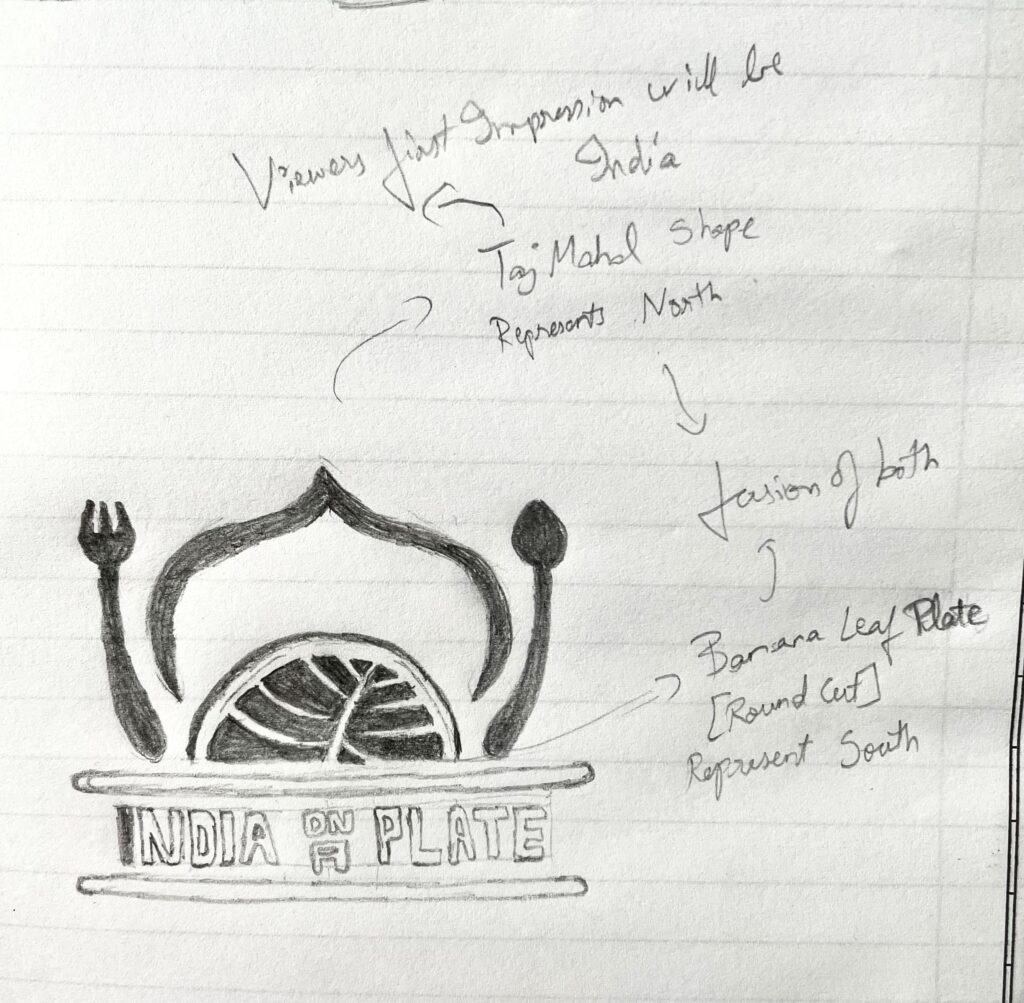 Viewers first Impression will be
India
Taj Mahal Shape
Represents North
fusion of both
Banana Leaf Plate
[Round Cut]
Represent South
INDIA ON A PLATE